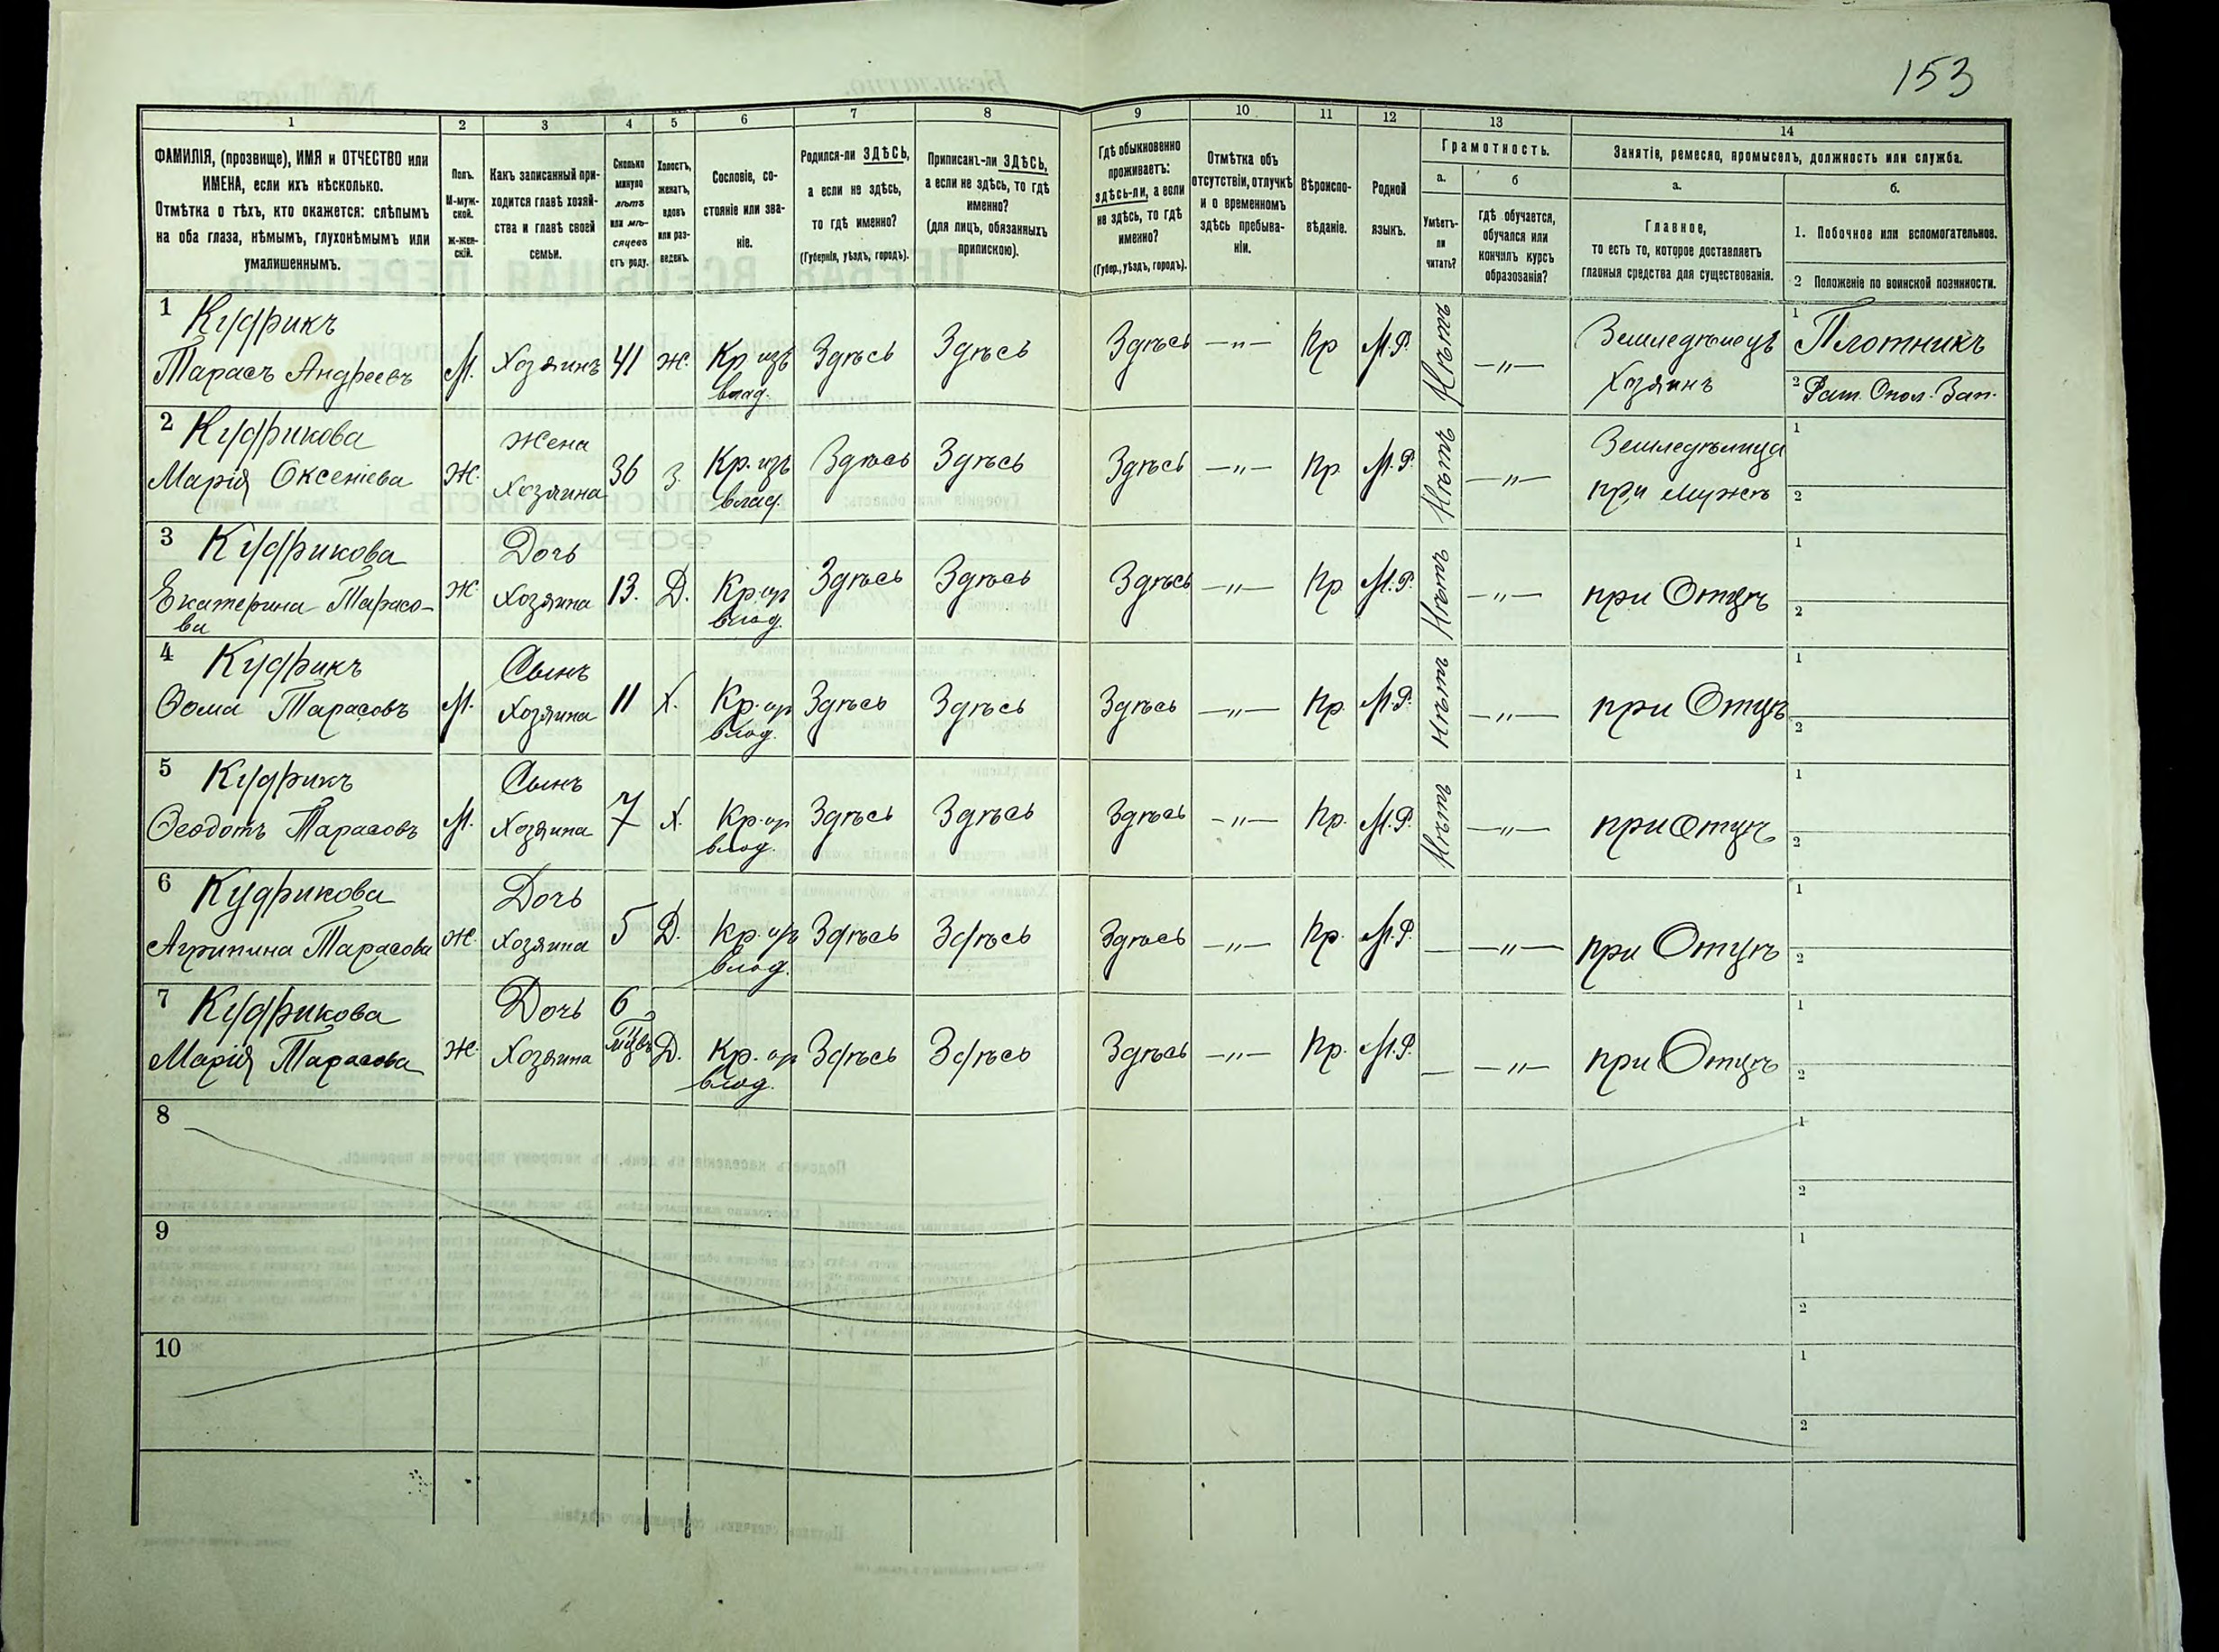 153
1 2 3 4 5 6 7 8 9 10 11 12 13 14
ФАМИЛІЯ, (прозвище), ИМЯ и ОТЧЕСТВО или
ИМЕНА, если ихъ нѣсколько.
Отмѣтка о тѣхъ, кто окажется: слѣпымъ
на оба глаза, нѣмымъ, глухонѣмымъ или
умалишеннымъ.
Полъ.
М-муж-
ской.
Ж-жен-
скій.
Какъ записанный при-
ходится главѣ хозяй-
ства и главѣ своей
семьи.
Сколько
минуло
лѣтъ
или мѣ-
сяцевъ
отъ роду.
Холостъ,
женатъ,
вдовъ
или раз-
веденъ.
Сословіе, со-
стояніе или зва-
ніе.
Родился-ли ЗДѢСЬ,
а если не здѣсь,
то гдѣ именно?
(Губернія, уѣздъ, городъ).
Приписанъ-ли ЗДѢСЬ,
а если не здѣсь, то гдѣ
именно?
(для лицъ, обязанныхъ
припискою).
Гдѣ обыкновенно
проживаетъ:
здѣсь-ли, а если
не здѣсь, то гдѣ
именно?
(Губер., уѣздъ, городъ).
Отмѣтка объ
отсутствіи, отлучкѣ
и о временномъ
здѣсь пребыва-
ніи.
Вѣроиспо-
вѣданіе.
Родной
языкъ.
Грамотность.
а.
Умѣетъ-
ли
читать?
б
гдѣ обучается,
обучался или
кончилъ курсъ
образованія?
Занятіе, ремесло, промыселъ, должность или служба.
а.
Главное,
то есть то, которое доставляетъ
главныя средства для существованія.
б.
1. Побочное или вспомогательное.
2 Положеніе по воинской повинности.
1 Кудрикъ
Тарасъ Андреевъ М. Хозяинъ 41 Ж. Кр. изъ влад. Здѣсь Здѣсь Здѣсь —„— Пр М.Р. Нѣтъ —„— Земледѣлецъ Хозяинъ 1 Плотникъ
2 Рат. Опол. Зап.
2 Кудрикова
Марія Оксеніева Ж. Жена Хозяина 36 З. Кр. изъ влад. Здѣсь Здѣсь Здѣсь —„— Пр. М.Р. Нѣтъ —„— Земледѣлица при мужѣ 1
2
3 Кудрикова
Екатерина Тарасо-
ва Ж. Дочь Хозяина 13. Д. Кр. из влад. Здѣсь Здѣсь Здѣсь —„— Пр. М.Р. Нѣтъ —„— при Отцѣ 1
2
4 Кудрикъ
Ѳома Тарасовъ М. Сынъ Хозяина 11 Х. Кр. из влад. Здѣсь Здѣсь Здѣсь —„— Пр. М.Р. Нѣтъ —„— при Отцѣ 1
2
5 Кудрикъ
Ѳеодотъ Тарасовъ М. Сынъ Хозяина 7 Х. Кр. из влад. Здѣсь Здѣсь Здѣсь —„— Пр. М.Р. Нѣтъ —„— при Отцѣ 1
2
6 Кудрикова
Агрипина Тарасова Ж. Дочь Хозяина 5 Д. Кр. изъ влад. Здѣсь Здѣсь Здѣсь —„— Пр. М.Р. — —„— при Отцѣ 1
2
7 Кудрикова
Марія Тарасова Ж. Дочь Хозяина 6 мцвъ Д. Кр. из влад. Здѣсь Здѣсь Здѣсь —„— Пр. М.Р. — —„— при Отцѣ 1
2
8 1
2
9 1
2
10 1
2